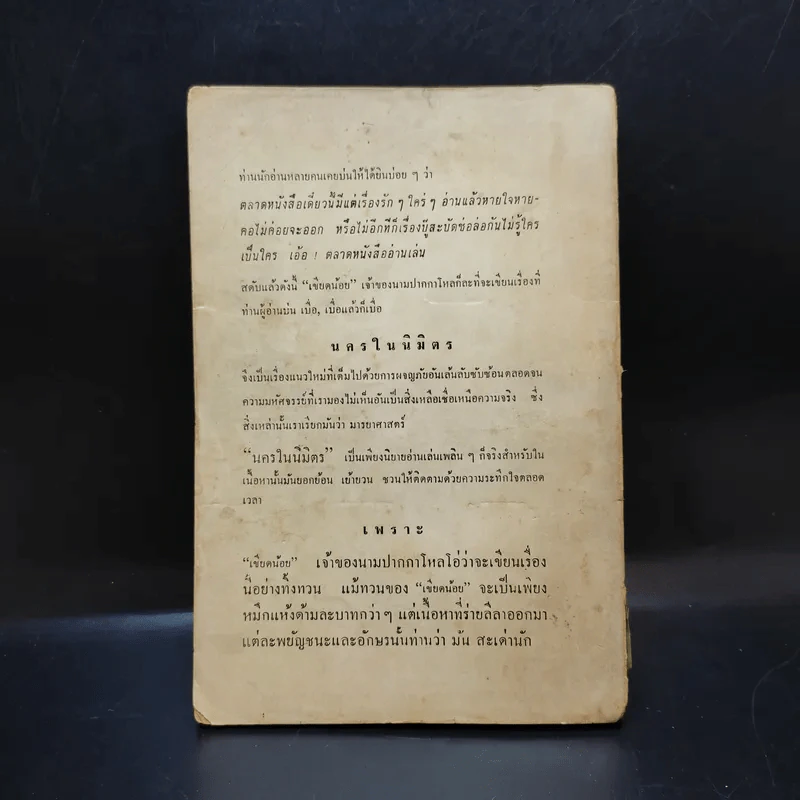 ท่านนักอ่านหลายคนเคยบ่นให้ได้ยินบ่อย ๆ ว่า
ตลาดหนังสือเดี๋ยวนี้มีแต่เรื่องรัก ๆ ใคร่ ๆ อ่านแล้วหายใจหาย-
คอไม่ค่อยจะออก หรือไม่อีกทีก็เรื่องบู๊สะบัดช่อล่อกันไม่รู้ใคร
เป็นใคร เอ้อ ! ตลาดหนังสืออ่านเล่น
สดับแล้วดังนี้ “เขียดน้อย” เจ้าของนามปากกาโหลก็ละที่จะเขียนเรื่องที่
ท่านผู้อ่านบ่น เบื่อ, เบื่อแล้วก็เบื่อ
นครในนิมิตร
จึงเป็นเรื่องแนวใหม่ที่เต็มไปด้วยการผจญภัยอันเล้นลับซับซ้อนตลอดจน
ความมหัศจรรย์ที่เรามองไม่เห็นอันเป็นสิ่งเหลือเชื่อเหนือความจริง ซึ่ง
สิ่งเหล่านั้นเราเรียกมันว่า มารยาศาสตร์
“นครในนิมิตร” เป็นเพียงนิยายอ่านเล่นเพลิน ๆ ก็จริงสำหรับใน
เนื้อหานั้นมันยอกย้อน เย้ายวน ชวนให้ติดตามด้วยความระทึกใจตลอด
เวลา
เพราะ
“เขียดน้อย” เจ้าของนามปากกาโหลโอ่ว่าจะเขียนเรื่อง
นี้อย่างทิ้งทวน แม้ทวนของ “เขียดน้อย” จะเป็นเพียง
หมึกแห้งด้ามละบาทกว่า ๆ แต่เนื้อหาที่ร่ายลีลาออกมา
แต่ละพยัญชนะและอักษรนั้นท่านว่า มัน สะเด่านัก